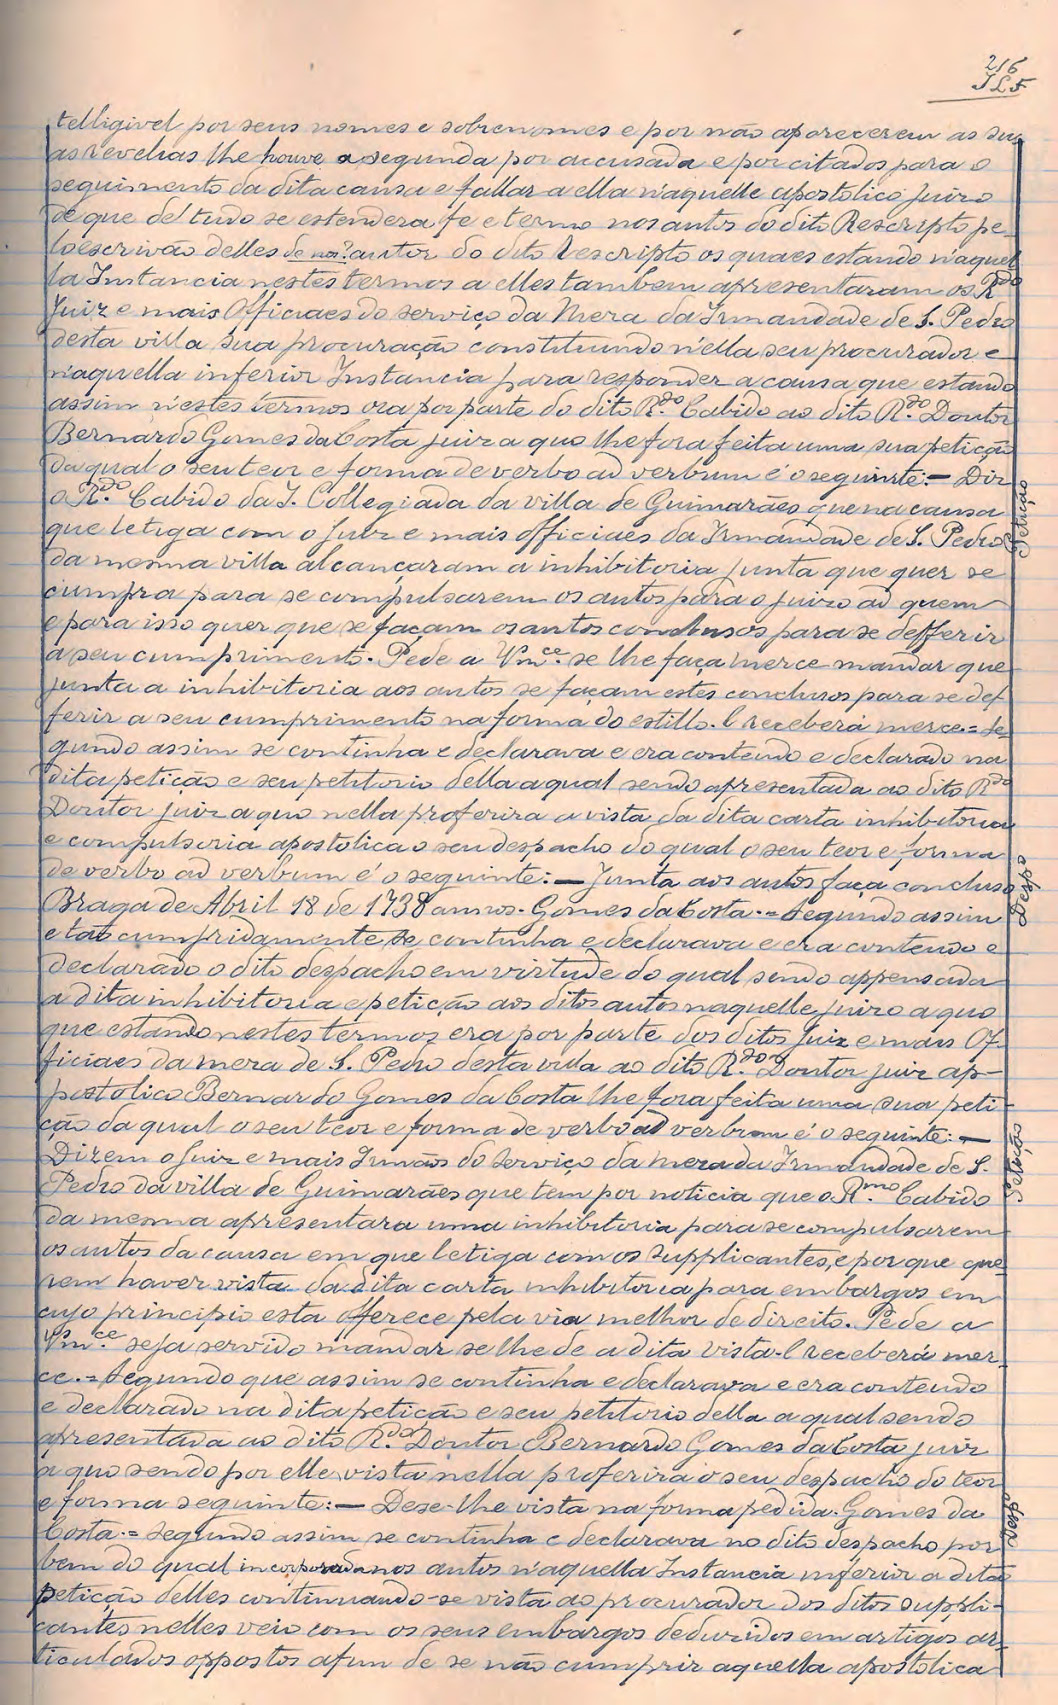 216
telligivel por seus nomes e sobrenomes e por não aparecerem as su
as revelias lhe houve a segunda por accusada e por citados para o
seguimento da dita causa e fallar a ella n'aquelle apostolico juizo
de que de tudo se estendera fe e termo nos autos do dito Rescripto pe-
lo escrivão delles de nos? autor do dito Rescripto os quaes estando n'aquel
la Instancia nestes termos a elles tambem apresentaram os Rdo
Juiz e mais Officiaes do serviço da Meza da Irmandade de S. Pedro
desta villa sua procuração constituindo n'ella seu procurador e
n'aquella inferior Instancia para responder a causa que estando
assim n'estes termos ora por parte do dito R.do Cabido ao dito R.do Doutor
Bernardo Gomes da Costa juiz a quo lhe fora feita uma sua petição
da qual o seu teor e forma de verbo ad verbum é o seguinte: — Diz
Petição
o R.do Cabido da I. Collegiada da villa de Guimarães que na causa
que letiga com o Juiz e mais officiaes da Irmandade de S. Pedro
da mesma villa alcançaram a inhibitoria junta que quer se
cumpra para se compulsarem os autos para o juizo ad quem
e para isso quer que se façam os autos conclusos para se defferir
a seu cumprimento. Pede a Vm.ce se lhe faça merce mandar que
junta a inhibitoria aos autos se façam estes conclusos para se def
ferir a seu cumprimento na forma do estillo. E receberá merce = Se-
gundo assim se continha e declarava e era contendo e declarado na
dita petição e seu petitorio della a qual sendo apresentada ao dito Rdo
Doutor juiz a quo nella proferira a vista da dita carta inhibitoria
e compulsoria apostolica o seu despacho do qual o seu teor e forma
de verbo ad verbum é o seguinte: — Junta aos autos faça concluso
Despo
Braga de Abril 18 de 1738 annos. Gomes da Costa. = Segundo assim
e tão cumpridamente se continha e declarava e era contendo e
declarado o dito despacho em virtude do qual sendo appensada
a dita inhibitoria e petição aos ditos autos naquelle juizo a quo
que estando nestes termos era por parte dos ditos Juiz e mais Of-
ficiaes da meza de S. Pedro desta villa ao dito R.do Doutor juiz ap-
postolico Bernardo Gomes da Costa lhe fora feita uma sua peti-
ção da qual o seu teor e forma de verbo ad verbum é o seguinte: —
Petição
Dizem o Juiz e mais Irmãos do serviço da meza da Irmandade de S.
Pedro da villa de Guimarães que tem por noticia que o R.mo Cabido
da mesma apresentara uma inhibitoria para se compulsarem
os autos da causa em que letiga com os supplicantes, e por que que-
rem haver vista da dita carta inhibitoria para embargos em
cujo principio esta offerece pela via melhor de direito. Pede a
Vm.ce seja servido mandar se lhe de a dita vista. E receberá mer-
ce. = Segundo que assim se continha e declarava e era contendo
e declarado na dita petição e seu petitorio della a qual sendo
apresentada ao dito R.do Doutor Bernardo Gomes da Costa juiz
a quo sendo por elle vista nella proferira o seu despacho do teor
e forma seguinte: — Dese-lhe vista na forma pedida. Gomes da
Despo
Costa. = Segundo assim se continha e declarava no dito despacho por
bem do qual incorporada nos autos n'aquella Instancia inferior a dita
petição delles continuando-se vista ao procurador dos ditos suppli-
cantes nelles veio com os seus embargos deduzidos em artigos ar-
ticulados oppostos afim de se não cumprir aquella apostolica